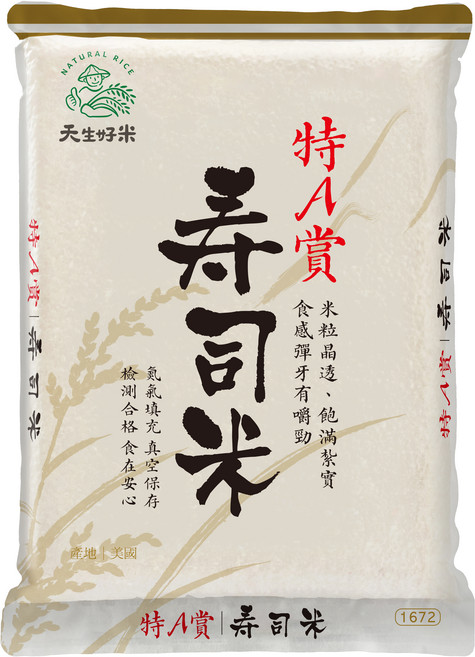 NATURAL RICE
天生好米
特A賞
寿司米
米粒晶透、飽滿紮實
食感彈牙有嚼勁
氮氣填充 真空保存
檢測合格 食在安心
產地｜美國
特A賞｜寿司米
特A賞｜寿司米
特A賞｜寿司米
1672